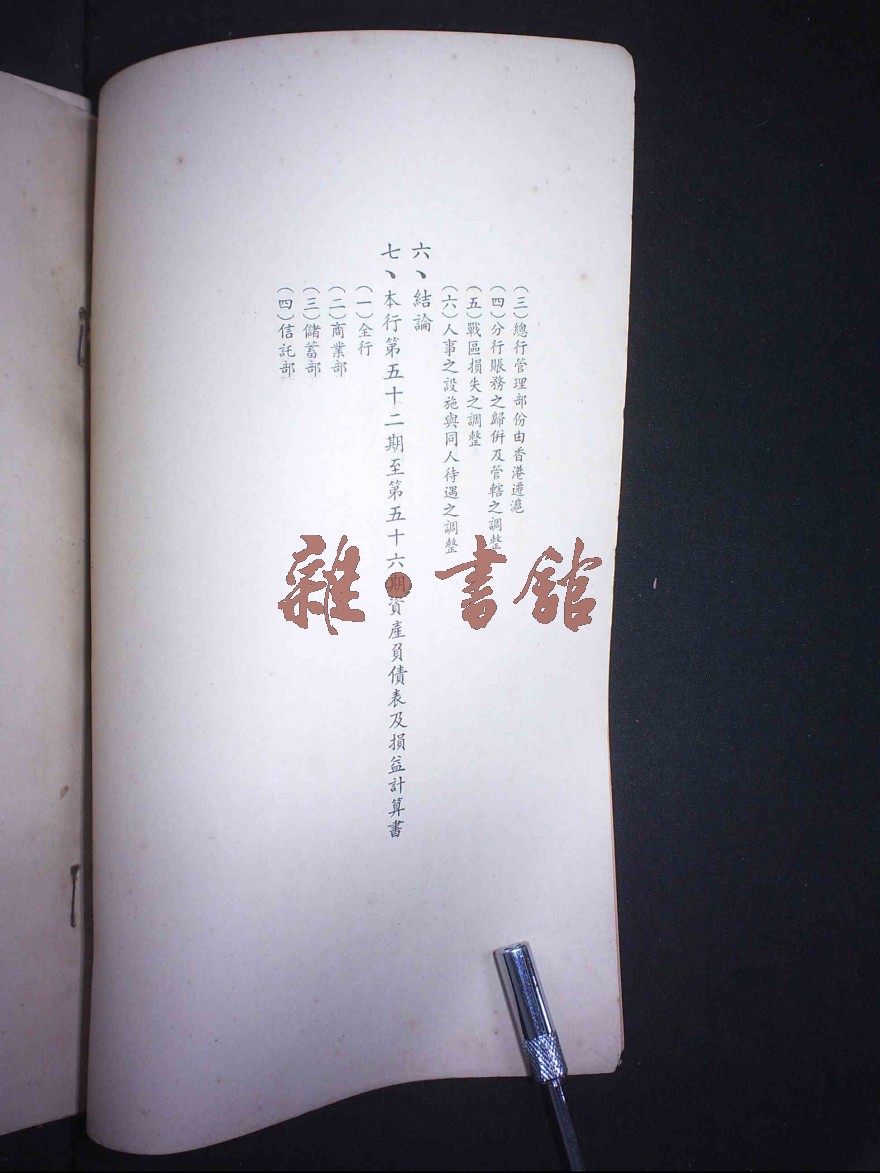 (三)總行管理部份由香港遷滬
(四)分行賬務之歸倂及管轄之調整
(五)戰區損失之調整
(六)人事之設施與同人待遇之調整
六、結論
七、本行第五十二期至第五十六期資產負債表及損益計算書
(一)全行
(二)商業部
(三)儲蓄部
(四)信託部
雜·書館